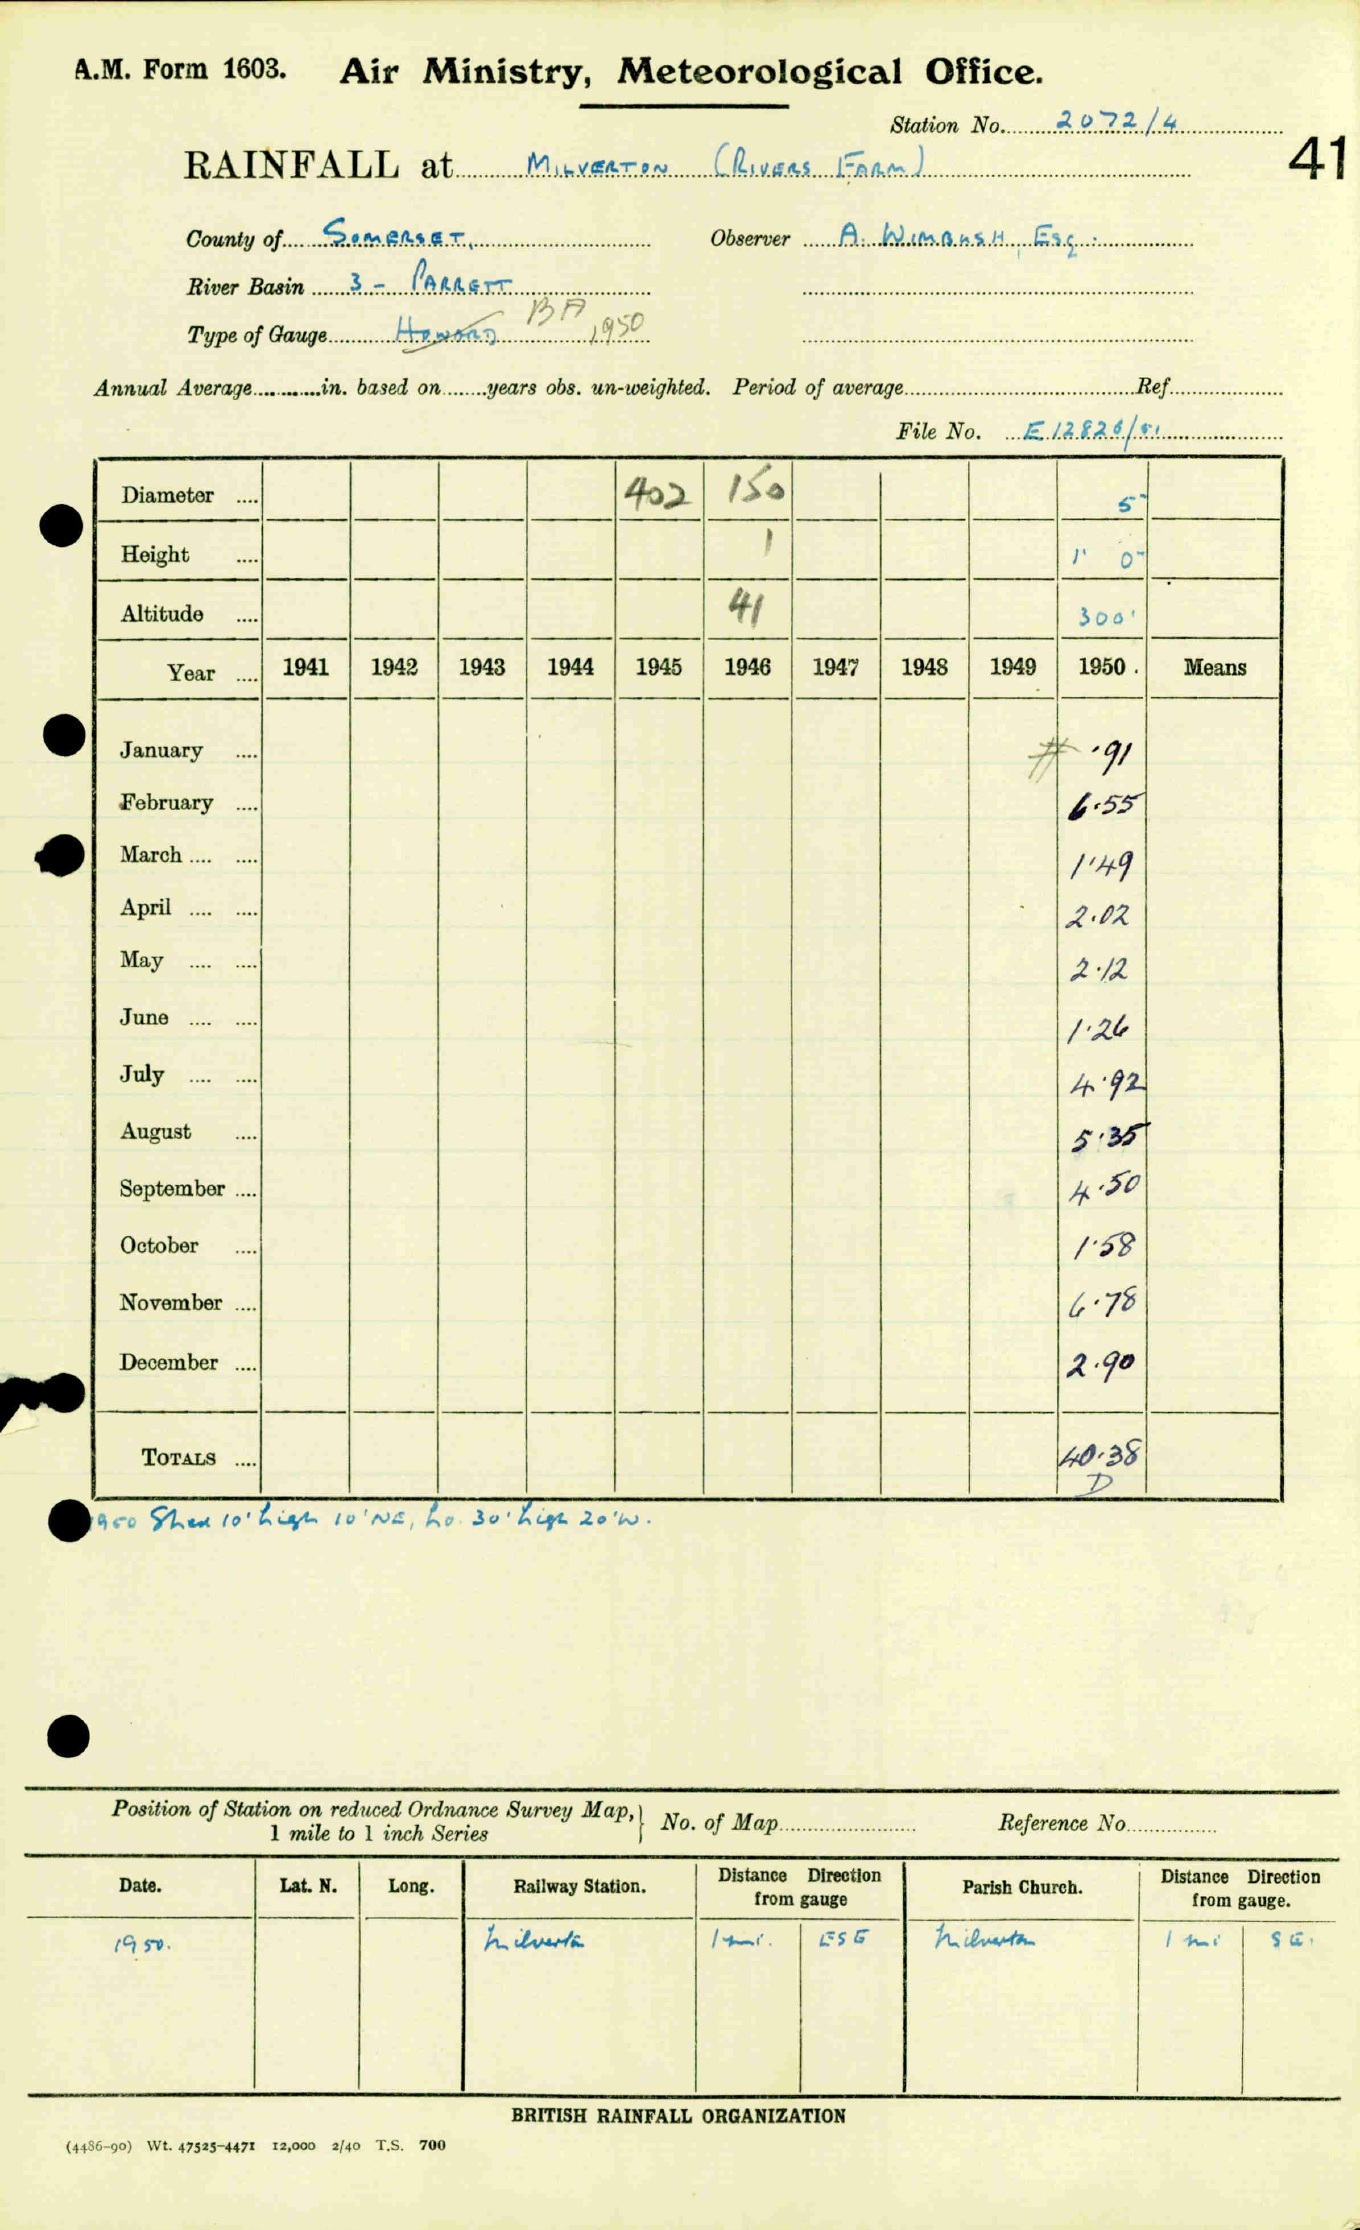 A.M. Form 1603. Air Ministry, Meteorological Office.
Station No. 2072/4
41
RAINFALL at MILVERTON (RIVERS FARM)
County of SOMERSET, Observer A. WIMBUSH, ESQ.
River Basin 3 - PARRETT
Type of Gauge HOWARD BA 1950
Annual Average in. based on years obs. un-weighted. Period of average Ref.
File No. E12826/51
Diameter 402 150 5"
Height 1 1' 0"
Altitude 41 300'
Year 1941 1942 1943 1944 1945 1946 1947 1948 1949 1950. Means
January # ·91
February 6·55
March 1·49
April 2·02
May 2·12
June 1·26
July 4·92
August 5·35
September 4·50
October 1·58
November 6·78
December 2·90
TOTALS 40·38
D
1950 Shed 10' high 10' NE, ho. 30' high 20' W.
Position of Station on reduced Ordnance Survey Map,} No. of Map Reference No.
1 mile to 1 inch Series
Date. Lat. N. Long. Railway Station. Distance Direction from gauge Parish Church. Distance Direction from gauge.
1950. Milverton 1 mi. ESE Milverton 1 mi SE.
BRITISH RAINFALL ORGANIZATION
(4486-90) Wt. 47525-4471 12,000 2/40 T.S. 700